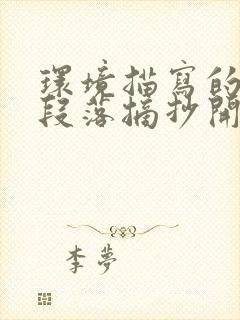 環境描寫的
段落摘抄開
李夢